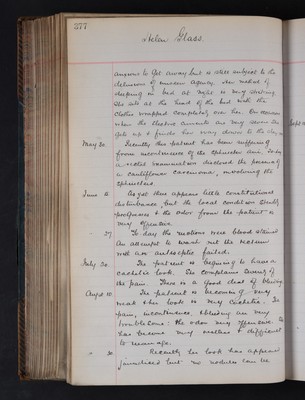 277
Helen Glass.
anxious to get away but is still subject to the
delusion of unseen agency. Her method of
sleeping in bed at night is very striking
She sits at the head of the bed with the
clothes wrapped completely over her. On occasions
when the electric currents are very severe she
gets up & finds her way down to the day
May 30. Recently this patient has been suffering
from incontinence of the sphincter ani. To day
a rectal examination disclosed the presence of
a cauliflower carcinoma, involving the
sphincters.
June 5. As yet there appears little constitutional
disturbance but the local condition steadily
progresses & the odor from the patient is
very offensive.
27 To day the motions were blood stained
An attempt to wash out the rectum
with an antiseptic failed.
July 30. The patient is beginning to have a
cachetic look. She complains bitterly of
the pain. There is a good deal of bleeding
Augst 10 The patient is becoming very
weak & her look is very cachetic. The
pain, incontinence, & bleeding are very
troublesome: the odor very offensive. She
has become very restless & difficult
to manage.
30. Recently her look has appeared
jaundiced but no nodules can be
Sept